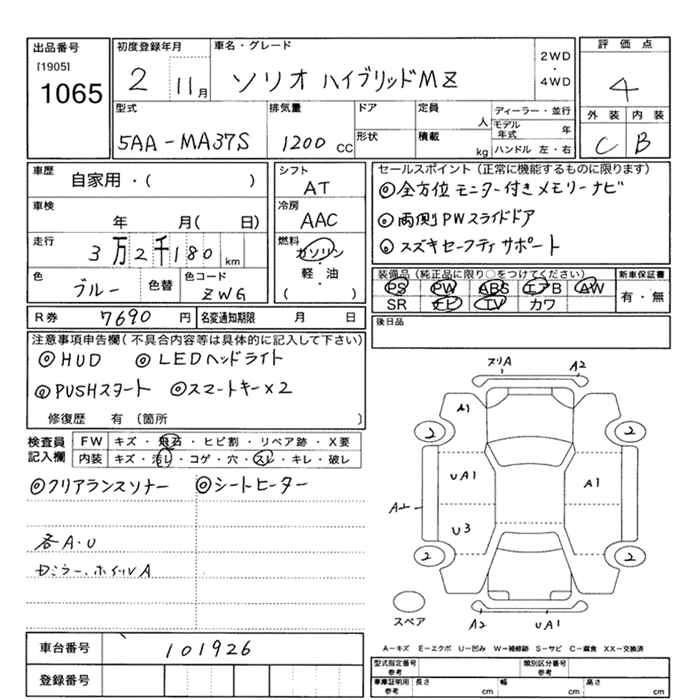 出品番号
[1905]
1065
初度登録年月
2 11月
車名・グレード
ソリオ ハイブリッドMZ
2WD
・
4WD
評価点
4
外装 内装
C B
型式
5AA-MA37S
排気量
1200 CC
ドア
形状
定員
人
積載
kg
ディーラー・並行
モデル年式 年
ハンドル 左・右
車歴
自家用・( )
車検
年 月( 日)
走行
3万2千180 km
色
ブルー
色替
色コード
ZWG
シフト
AT
冷房
AAC
燃料
ガソリン
・
軽・油
( )
セールスポイント(正常に機能するものに限ります)
◎全方位モニター付きメモリーナビ
◎両側PWスライドドア
◎スズキセーフティサポート
装備品(純正品に限り○をつけてください)
PS PW ABS エアB AW
SR ナビ TV カワ
新車保証書
有・無
後日品
R券 7690 円 名変通知期限 月 日
注意事項申告欄(不具合内容等は具体的に記入して下さい)
◎HUD ◎LEDヘッドライト
◎PUSHスタート ◎スマートキー×2
修復歴 有 (箇所 )
検査員記入欄
FW キズ・飛石・ヒビ割・リペア跡・X要
内装 キズ・汚レ・コゲ・穴・スレ・キレ・破レ
◎クリアランスソナー ◎シートヒーター
各A・U
ドミラー、ホイルA
スリA A2
A1
2 2
UA1 A1
A1
U3
2 2
スペア
A2 UA1
A-キズ E-エクボ U-凹み W-補修跡 S-サビ C-腐食 XX-交換済
車台番号 101926
登録番号
型式指定番号 参考
類別区分番号 参考
車庫証明用 参考
長さ cm 幅 cm 高さ cm